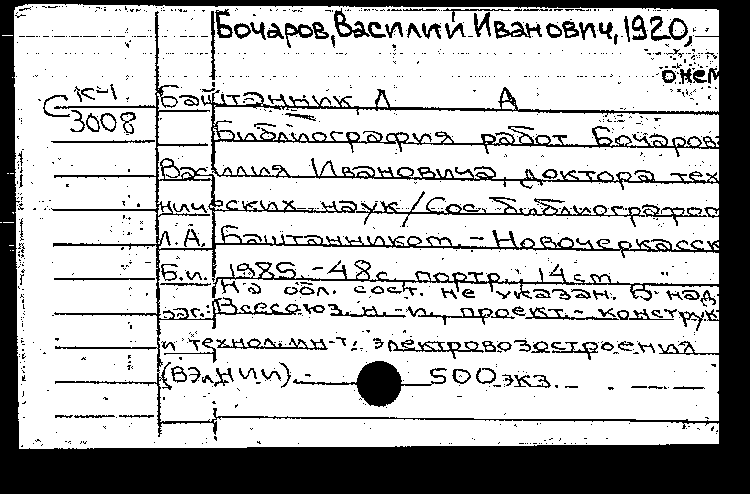 Бочаров, Василий Иванович, 1920,
о нем
С К-4
3008
Баштанник, Л А
Библиография работ Бочарова
Василия Ивановича, доктора тех
нических наук / Сос. библиографом
Л.А. Баштанником. - Новочеркасск
Б.и. 1985. - 48 с. портр.; 14 cm
На обл. сост. не указан. В над
заг.: Всесоюз. н.-и., проект.- конструк
и технол. ин-т. электровозостроения
(ВЭлНИИ). - 500 экз.